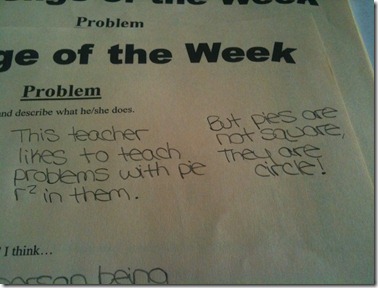 Problem
ge of the Week
Problem
and describe what he/she does.
This teacher
likes to teach
problems with pie
r² in them.
But pies are
not square,
They are
circle!
I think...
person being